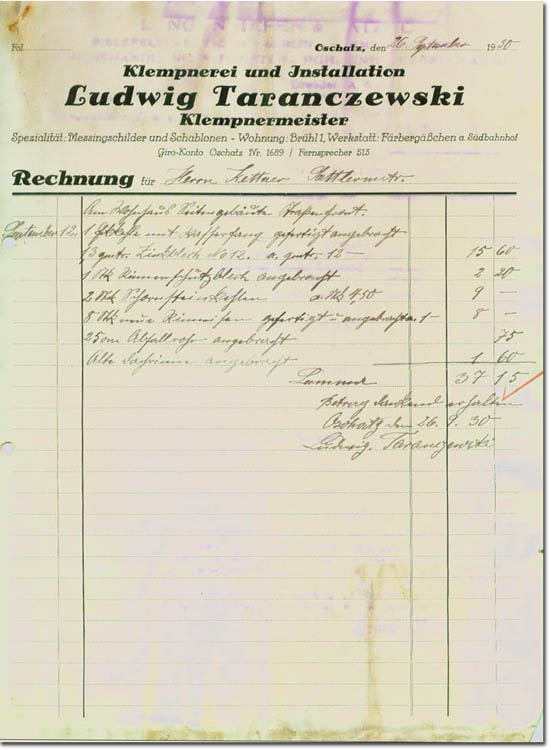 Fol.
Oschatz, den 26. September 1930
Klempnerei und Installation
Ludwig Taranczewski
Klempnermeister
Spezialität: Messingschilder und Schablonen - Wohnung: Brühl 1, Werkstatt: Färbergäßchen a. Südbahnhof
Giro-Konto Oschatz Nr. 1689 / Fernsprecher 513
Rechnung für Herrn Kettner Sattlermstr.
Am Wohnhaus Seitengebäude Straßenfront.
September 12. 1 mit Wasserfang gefertigt angebracht
1 3 qmtr. Zinkblech No 12. a. qmtr. 12 — 15 60
1 Stk Rinnenschutzblech angebracht 2 20
2 Stk Schornsteinkehlen a. Stk 4.50 9 —
8 Stk neue Rinneisen gefertigt u. angebracht a. 1 8 —
25 cm Abfallrohr angebracht 75
Alte Dachrinne angebracht 1 60
Summa 37 15
Betrag dankend erhalten
Oschatz den 26. 9. 30
Ludwig. Taranczewski